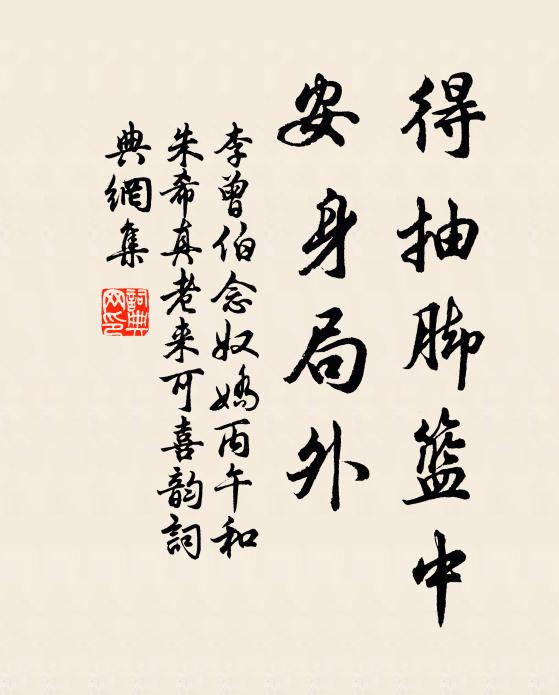 得抽脚籃中
安身局外
李曾伯念奴嬌丙午和
朱希真老来可喜韵詞
典網集
詞典網印